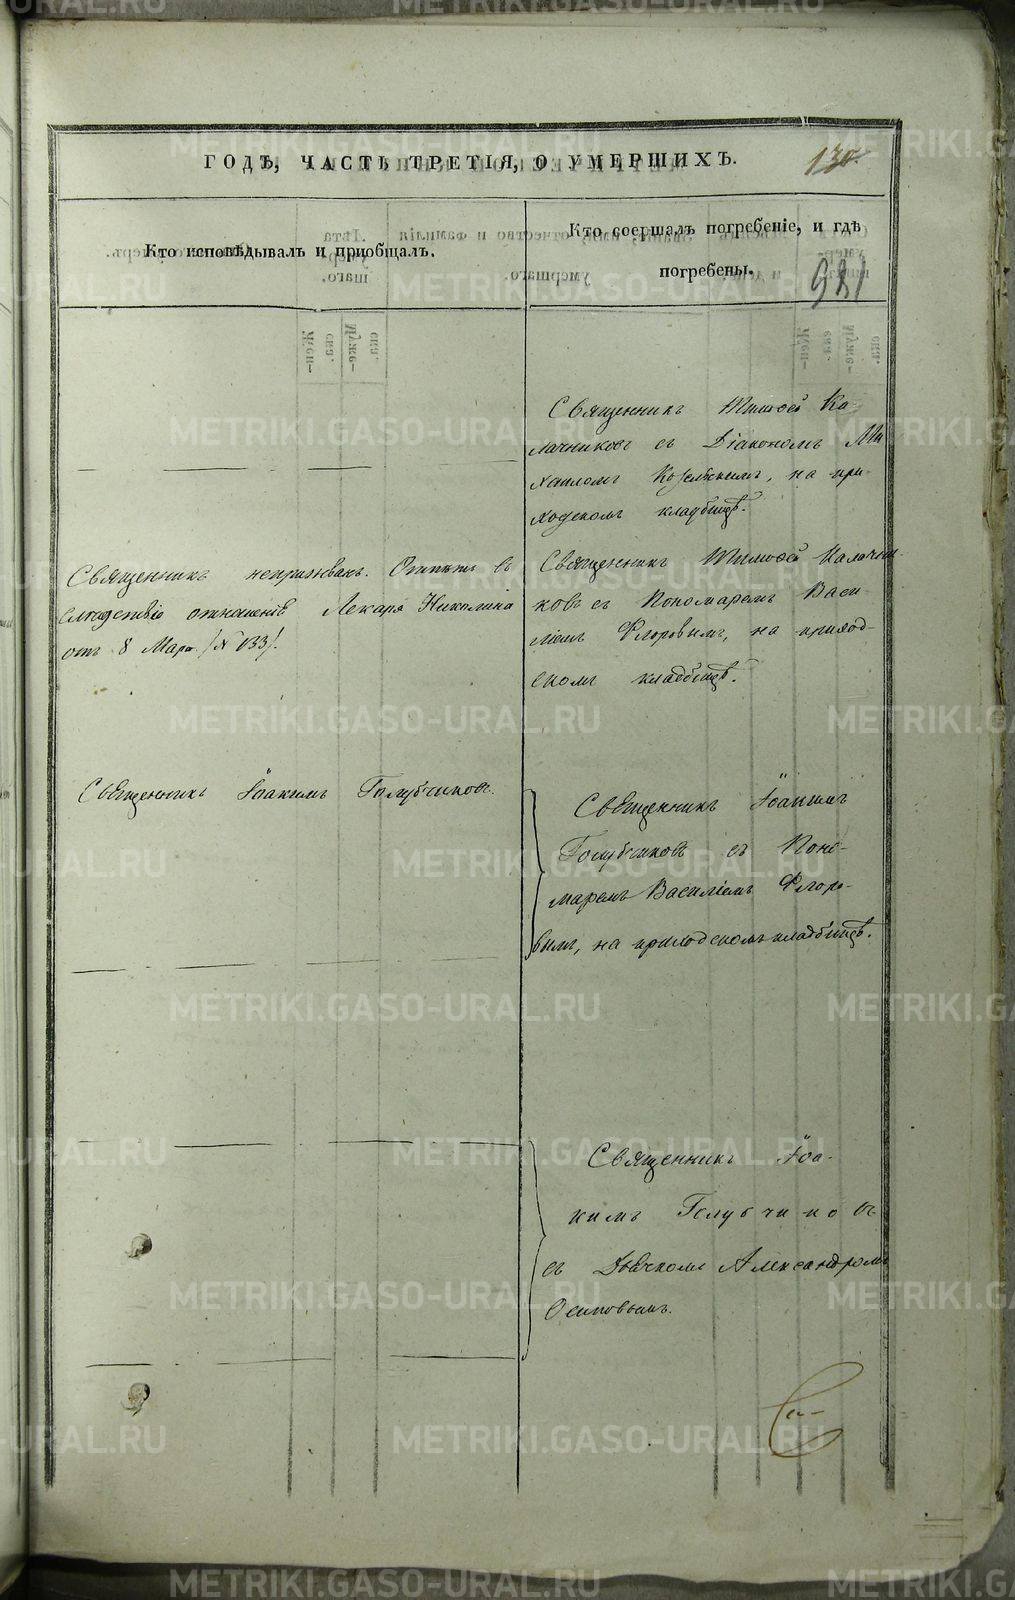 ГОДѢ, ЧАСТЬ ТРЕТІЯ, О УМЕРШИХЪ.
130.
Кто исповѣдывалъ и пріобщалъ.
Кто соершалъ погребеніе, и гдѣ
погребены.
981
Священникъ Тимофей Ка-
лачниковъ съ Діакономъ Ми
хаиломъ Козельскимъ, на при
ходскомъ кладбищѣ.
Священникъ непризыванъ. Отпѣтъ въ
слѣдствіе отношенія Лекаря Николина
отъ 8 Мар. /№ 133/.
Священникъ Тимофей Калачни-
ковъ съ Пономаремъ Васи-
ліемъ Флоровымъ, на приход-
скомъ кладбищѣ.
Священникъ Іоакимъ Голубчиковъ.
Священникъ Іоакимъ
Голубчиковъ съ Поно-
маремъ Василіемъ Флоро-
вымъ, на приходскомъ кладбищѣ.
Священникъ Іоа-
кимъ Голубчиковъ
съ Дьячкомъ Александромъ
Осиповымъ.
METRIKI.GASO-URAL.RU